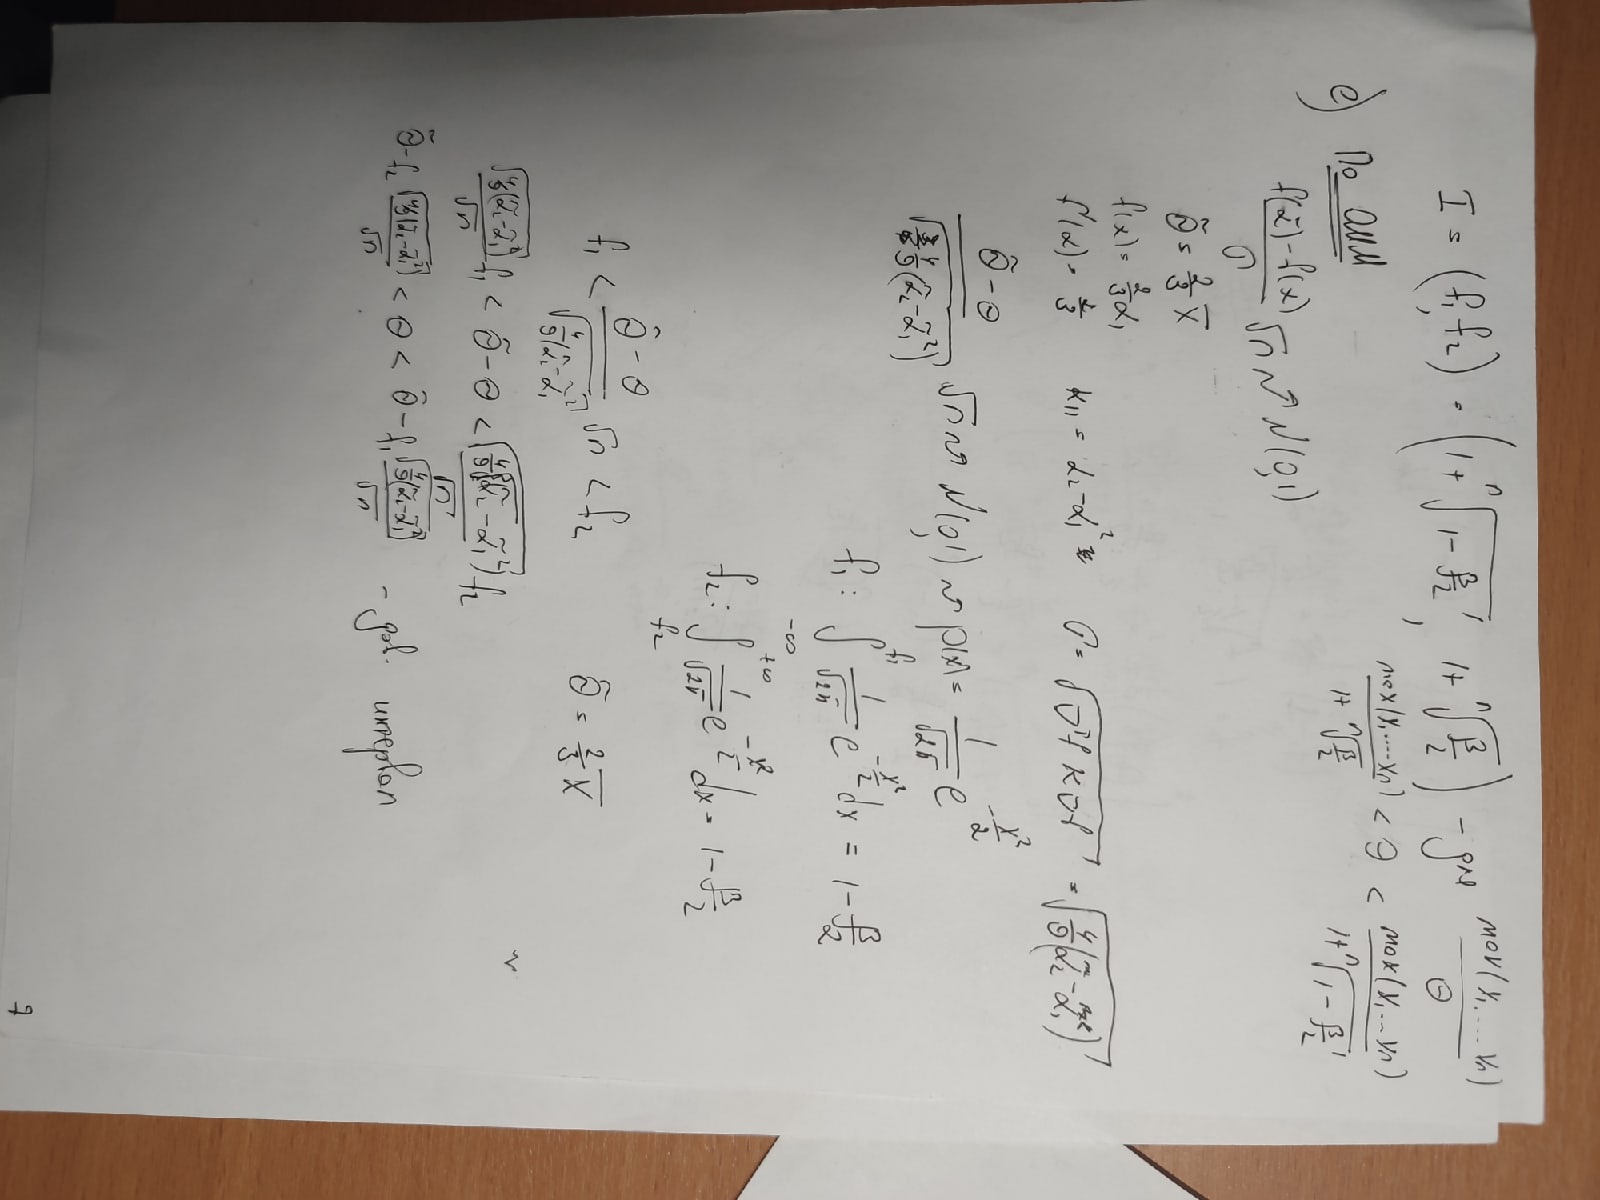 I = (f₁, f₂) = (1 + ⁿ√(1 - β/2), 1 + ⁿ√(β/2)) - для max(x₁....xₙ)/Θ
max(x₁....xₙ)/(1 + ⁿ√(β/2)) < Θ < max(x₁...xₙ)/(1 + ⁿ√(1 - β/2))
е) По ОММ
(f(α̃) - f(α))/σ √n ~> N(0,1)
Θ̃ = 2/3 X̄
f(α) = 2/3 α₁
f'(α) = 2/3 K₁₁ = α₂ - α₁² σ = √(∇ᵀf K ∇f) = √(4/9(α̃₂ - α̃₁²))
(Θ̃ - Θ)/√(4/9(α̃₂ - α̃₁²)) √n ~> N(0,1) ~> p(x) = 1/√(2π) e^(-x²/2)
f₁: ∫_{-∞}^{f₁} 1/√(2π) e^(-x²/2) dx = 1 - β/2
f₂: ∫_{f₂}^{+∞} 1/√(2π) e^(-x²/2) dx = 1 - β/2
f₁ < (Θ̃ - Θ)/√(4/9(α̃₂ - α̃₁²)) √n < f₂ Θ̃ = 2/3 X̄
√(4/9(α̃₂ - α̃₁²))/√n f₁ < Θ̃ - Θ < √(4/9(α̃₂ - α̃₁²))/√n f₂
Θ̃ - f₂ √(4/9(α̃₂ - α̃₁²))/√n < Θ < Θ̃ - f₁ √(4/9(α̃₂ - α̃₁²))/√n - дов. интервал
7